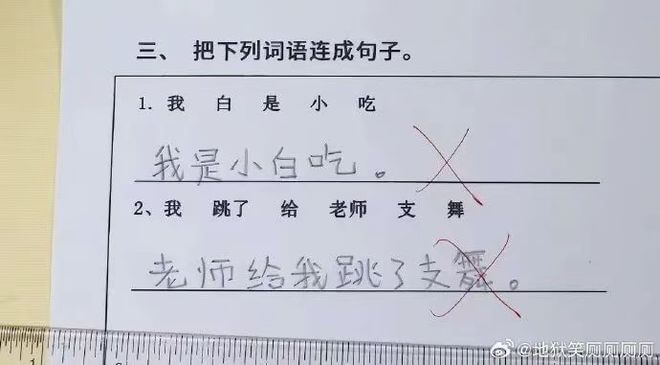 三、 把下列词语连成句子。
1. 我 白 是 小 吃
我是小白吃。
2、我 跳了 给 老师 支 舞
老师给我跳了支舞。
@地狱笑贝贝贝贝